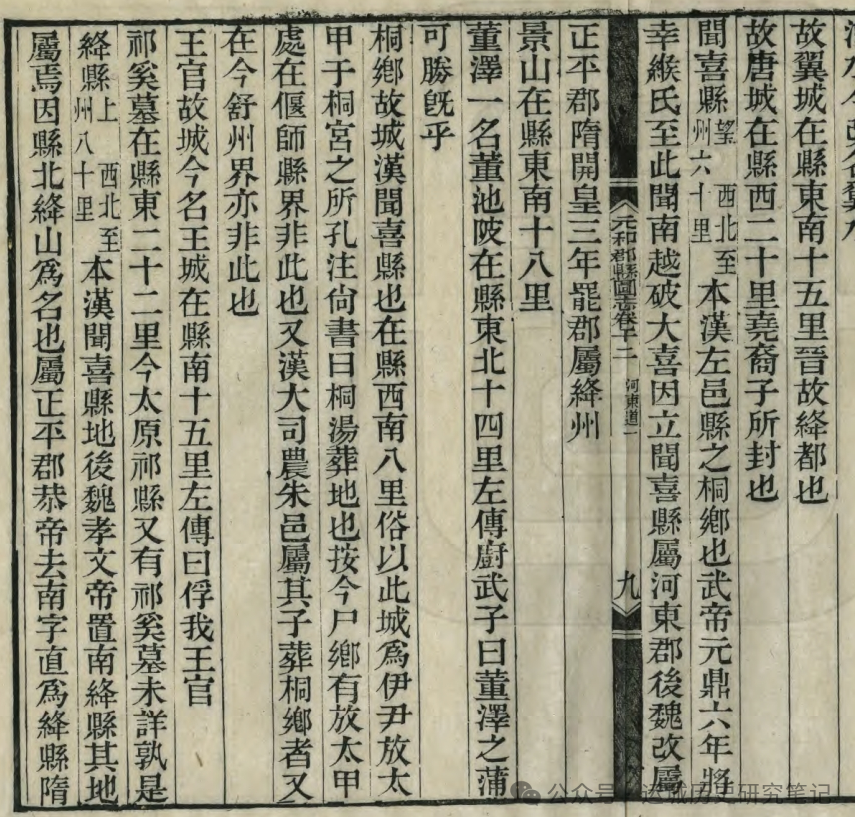 故翼城在縣東南十五里晉故絳都也
故唐城在縣西二十里堯裔子所封也
聞喜縣望西北至州六十里本漢左邑縣之桐鄉也武帝元鼎六年將
幸緱氏至此聞南越破大喜因立聞喜縣屬河東郡後魏改屬
元和郡縣圖志卷十二 河東道一 九
正平郡隋開皇三年罷郡屬絳州
景山在縣東南十八里
董澤一名董池陂在縣東北十四里左傳廚武子曰董澤之蒲
可勝旣乎
桐鄉故城漢聞喜縣也在縣西南八里俗以此城爲伊尹放太
甲于桐宮之所孔注尙書曰桐湯葬地也按今尸鄉有放太甲
處在偃師縣界非此也又漢大司農朱邑屬其子葬桐鄉者又
在今舒州界亦非此也
王官故城今名王城在縣南十五里左傳曰俘我王官
祁奚墓在縣東二十二里今太原祁縣又有祁奚墓未詳孰是
絳縣上西北至州八十里本漢聞喜縣地後魏孝文帝置南絳縣其地
屬焉因縣北絳山爲名也屬正平郡恭帝去南字直爲絳縣隋
公众号·运城历史研究笔记